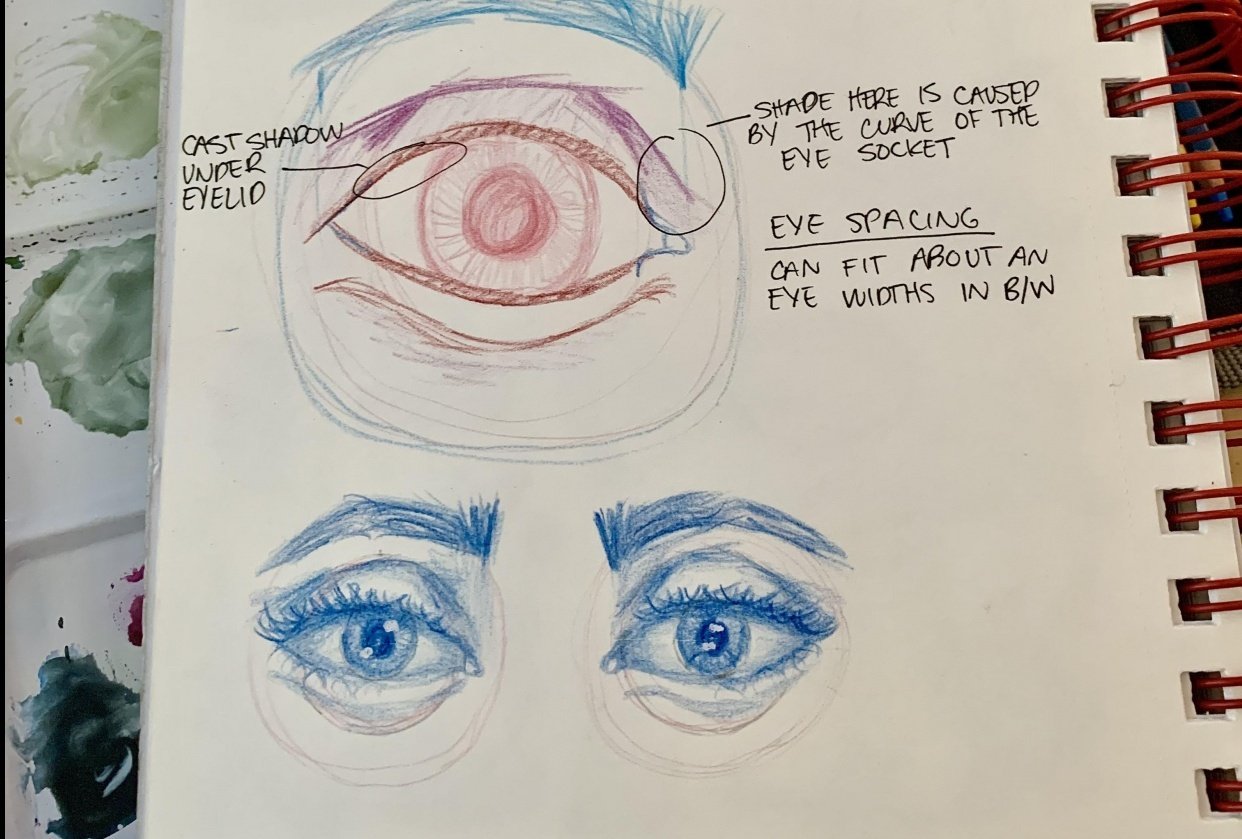 CAST SHADOW
UNDER
EYELID
SHADE HERE IS CAUSED
BY THE CURVE OF THE
EYE SOCKET
EYE SPACING
CAN FIT ABOUT AN
EYE WIDTHS IN B/W